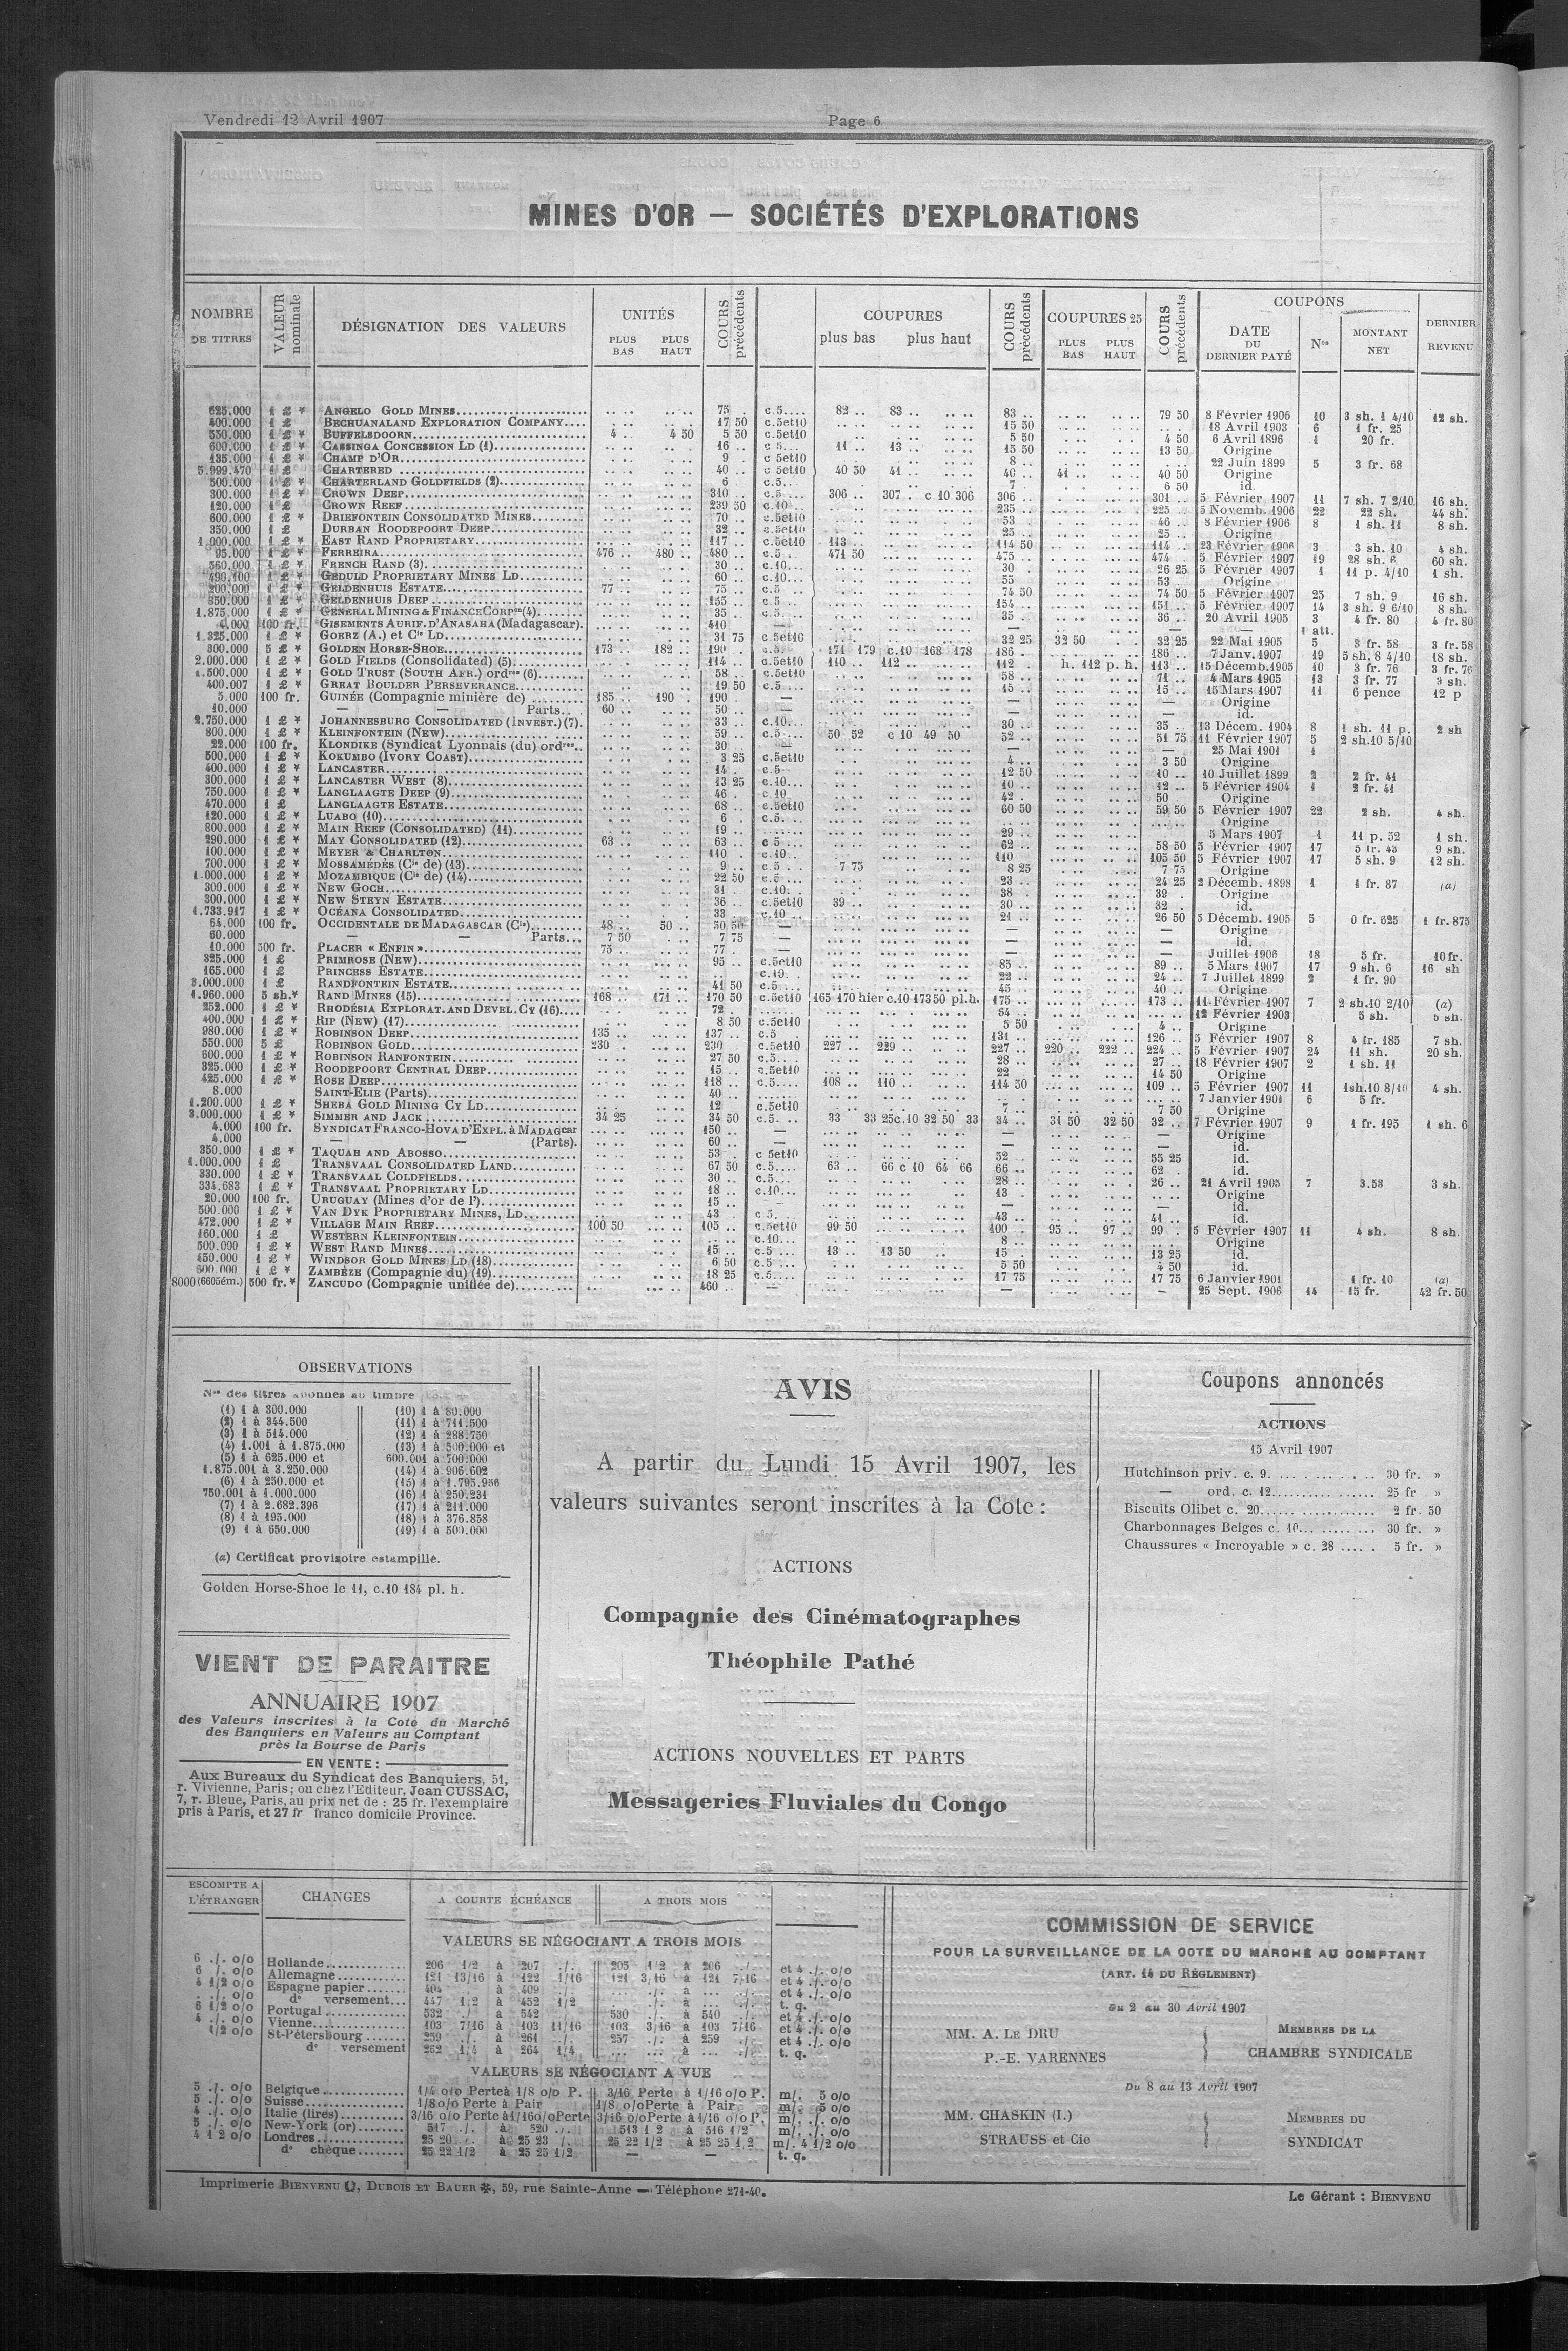 Vendredi 12 Avril 1907
Page 6
MINES D'OR — SOCIÉTÉS D'EXPLORATIONS
NOMBRE DE TITRES
VALEUR nominale
DÉSIGNATION DES VALEURS
UNITÉS
PLUS BAS PLUS HAUT
COURS précédents
COUPURES
plus bas plus haut
COURS précédents
COUPURES 25
PLUS BAS PLUS HAUT
COURS précédents
COUPONS
DATE DU DERNIER PAYÉ
Nos
MONTANT NET
DERNIER REVENU
625.000 1 £ * ANGELO GOLD MINES 75 . c.5.... 82 .. 83 .. 83 .. 79 50 8 Février 1906 10 3 sh. 1 4/10 12 sh.
400.000 1 £ BECHUANALAND EXPLORATION COMPANY 17 50 c.5et10 15 50 18 Avril 1903 6 1 fr. 25
550.000 1 £ * BUFFELSDOORN 4 .. 4 50 5 50 c.5et10 5 50 4 50 6 Avril 1896 1 20 fr.
600.000 1 £ * CASSINGA CONCESSION LD (1) 16 .. c 5... 11 .. 13 .. 15 50 13 50 Origine
135.000 1 £ * CHAMP D'OR 9 .. c 5et10 8 .. 22 Juin 1899 5 3 fr. 68
5.999.470 1 £ CHARTERED 40 .. c 5et10 40 50 41 .. 40 .. 41 .. 40 50 Origine
500.000 1 £ * CHARTERLAND GOLDFIELDS (2) 6 c.5.. 7 . 6 50 id.
300.000 1 £ * CROWN DEEP 310 .. c.5.... 306 .. 307 . c 10 306 306 .. 301 .. 5 Février 1907 11 7 sh. 7 2/10 16 sh.
120.000 1 £ CROWN REEF 239 50 c.10.. 235 .. 225 .. 5 Novemb. 1906 22 22 sh. 44 sh.
600.000 1 £ * DRIEFONTEIN CONSOLIDATED MINES 70 .. c.5et10 53 46 .. 8 Février 1906 8 1 sh. 11 8 sh.
350.000 1 £ DURBAN ROODEPOORT DEEP 32 .. c.5et10 25 .. 25 .. Origine
1.000.000 1 £ * EAST RAND PROPRIETARY 117 .. c.5et10 113 .. 114 50 114 .. 23 Février 1906 3 3 sh. 10 4 sh.
95.000 1 £ * FERREIRA 476 .. 480 .. 480 .. c.5.. 471 50 475 474 .. 5 Février 1907 19 28 sh. 6 60 sh.
560.000 1 £ * FRENCH RAND (3) 30 c.10... 30 .. 26 25 5 Février 1907 1 11 p. 4/10 1 sh.
490.100 1 £ * GEDULD PROPRIETARY MINES LD 60 .. c.10... 55 53 .. Origine
200.000 1 £ * GELDENHUIS ESTATE 77 .. 75 c.5 74 50 74 50 5 Février 1907 25 7 sh. 9 16 sh.
350.000 1 £ * GELDENHUIS DEEP 155 .. c.5 .. 154 .. 151 .. 5 Février 1907 14 3 sh. 9 6/10 8 sh.
1.875.000 1 £ * GENERAL MINING & FINANCE CORPon (4) 35 .. c.5.... 35 . 36 .. 20 Avril 1905 3 4 fr. 80 4 fr. 80
100 fr. GISEMENTS AURIF. D'ANASAHA (Madagascar). 410 — — — — 1 att.
1.325.000 1 £ * GOERZ (A.) et Cie LD 31 75 c.5et10 32 25 32 50 32 25 22 Mai 1905 5 3 fr. 58 3 fr. 58
300.000 5 £ * GOLDEN HORSE-SHOE 173 .. 182 .. 190 .. c.5.. 171 179 c.10 168 178 186 .. 186 .. 7 Janv. 1907 19 5 sh. 8 4/10 18 sh.
2.000.000 1 £ * GOLD FIELDS (Consolidated) (5) 114 .. c.5et10 110 .. 112 .. 112 . h. 112 p. h. 113 .. 15 Décemb. 1905 10 3 fr. 76 3 fr. 76
1 £ * GOLD TRUST (SOUTH AFR.) ordres (6) 58 .. c.5et10 58 .. 71 .. 4 Mars 1905 13 3 fr. 77 3 sh.
400.007 1 £ * GREAT BOULDER PERSEVERANCE 19 50 c.5.... 15 .. 15 .. 15 Mars 1907 11 6 pence 12 p
5.000 100 fr. GUINÉE (Compagnie minière de) 185 .. 190 . 190 . — — — Origine
10.000 — — Parts 60 .. 50 .. — — — id.
2.750.000 1 £ * JOHANNESBURG CONSOLIDATED (INVEST.) (7). 33 .. c.10... 30 .. 35 .. 13 Décem. 1904 8 1 sh. 11 p. 2 sh
800.000 1 £ * KLEINFONTEIN (NEW) 59 .. c.5.... 50 52 c 10 49 50 52 .. 51 75 11 Février 1907 5 2 sh.10 5/10
22.000 100 fr. KLONDIKE (Syndicat Lyonnais (du) ordres 30 .. — — — 25 Mai 1901 1
500.000 1 £ * KOKUMBO (IVORY COAST) 3 25 c.5et10 4 .. 3 50 Origine
400.000 1 £ * LANCASTER 14 . c.5.. 12 50 10 .. 10 Juillet 1899 2 2 fr. 41
300.000 1 £ * LANCASTER WEST (8) 13 25 c.10... 10 .. 12 .. 5 Février 1904 1 2 fr. 41
750.000 1 £ * LANGLAAGTE DEEP (9) 46 .. c.10.. 42 . 50 .. Origine
470.000 1 £ LANGLAAGTE ESTATE 68 .. c.5et10 60 50 59 50 5 Février 1907 22 2 sh. 4 sh.
120.000 1 £ * LUABO (10) 6 c.5. .. Origine
800.000 1 £ * MAIN REEF (CONSOLIDATED) (11) 19 .. 29 .. 5 Mars 1907 1 11 p. 52 1 sh.
290.000 1 £ * MAY CONSOLIDATED (12) 63 .. 63 .. c 5 ... 62 .. 58 50 5 Février 1907 17 9 sh.
100.000 1 £ * MEYER & CHARLTON 110 .. c.10.. 110 .. 105 50 5 Février 1907 17 5 sh. 9 12 sh.
700.000 1 £ * MOSSAMÉDÈS (Cie de) (13) 9 .. c 5 .. 7 75 8 25 7 75 Origine
1.000.000 1 £ * MOZAMBIQUE (Cie de) (14) 22 50 c.5.... 23 .. 24 25 2 Décemb. 1898 1 1 fr. 87 (a)
300.000 1 £ * NEW GOCH 31 . c.10. 38 . 39 . Origine
300.000 1 £ * NEW STEYN ESTATE 36 .. c.5et10 39 .. 30 .. 32 .. id.
1.733.917 1 £ * OCÉANA CONSOLIDATED 33 . c.10... 21 .. 26 50 5 Décemb. 1905 5 0 fr. 625 1 fr. 875
64.000 100 fr. OCCIDENTALE DE MADAGASCAR (Cie) 48 .. 50 .. 50 50 — — — Origine
60.000 — — Parts 7 50 7 75 — — — id.
10.000 500 fr. PLACER « ENFIN » 75 .. 77 . — — — Juillet 1906 18 5 fr. 10 fr.
325.000 1 £ PRIMROSE (NEW) 95 .. c.5et10 85 .. 89 .. 5 Mars 1907 17 9 sh. 6 16 sh
165.000 1 £ PRINCESS ESTATE c.10. 22 .. 24 .. 7 Juillet 1899 2 1 fr. 90
3.000.000 1 £ RANDFONTEIN ESTATE 41 50 c.5 .... 45 .. 40 .. Origine
1.960.000 5 sh.* RAND MINES (15) 168 .. 171 .. 170 50 c.5et10 165 170 hier c.10 173 50 pl.h. 175 .. 173 .. 11 Février 1907 7 2 sh.10 2/10 (a)
252.000 1 £ * RHODÉSIA EXPLORAT. AND DEVEL. CY (16) 72 .. 64 .. 12 Février 1903 5 sh. 5 sh.
400.000 1 £ * RIP (NEW) (17) 8 50 c.5et10 5 50 4 .. Origine
980.000 1 £ * ROBINSON DEEP 135 .. 137 .. c.5 .. 131 .. 126 .. 5 Février 1907 8 4 fr. 185 7 sh.
550.000 5 £ ROBINSON GOLD 230 .. 230 . c.5et10 227 .. 229 .. 227 .. 220 .. 222 .. 224 .. 5 Février 1907 24 11 sh. 20 sh.
600.000 1 £ * ROBINSON RANFONTEIN 27 50 c.5.... 28 .. 27 .. 18 Février 1907 2 1 sh. 11
325.000 1 £ * ROODEPOORT CENTRAL DEEP 15 .. c.5et10 22 .. 14 50 Origine
425.000 1 £ * ROSE DEEP 118 .. c.5.... 108 .. 110 .. 114 50 109 .. 5 Février 1907 11 1sh.10 8/10 4 sh.
8.000 SAINT-ELIE (Parts) 40 .. — — 7 Janvier 1901 6 5 fr.
1.200.000 1 £ * SHEBA GOLD MINING CY LD 12 c.5et10 7 .. 7 50 Origine
3.000.000 1 £ * SIMMER AND JACK 34 25 34 50 c.5. .. 33 33 25c.10 32 50 33 34 .. 31 50 32 50 32 .. 7 Février 1907 9 1 fr. 195 1 sh. 6
4.000 100 fr. SYNDICAT FRANCO-HOVA D'EXPL. à MADAGcar 150 .. — — — Origine
4.000 — — (Parts). 60 .. — — — id.
350.000 1 £ * TAQUAH AND ABOSSO 53 . c 5et10 52 .. 55 25 id.
1.000.000 1 £ TRANSVAAL CONSOLIDATED LAND 67 50 c.5.... 63 .. 66 c 10 64 66 66 .. 62 . id.
330.000 1 £ * TRANSVAAL COLDFIELDS 30 .. c.5... 28 .. 26 .. 21 Avril 1905 7 3.58 3 sh.
334.683 1 £ * TRANSVAAL PROPRIETARY LD 18 .. c.10... 13 Origine
20.000 100 fr. URUGUAY (Mines d'or de l') 15 .. — — — id.
500.000 1 £ * VAN DYK PROPRIETARY MINES, LD 43 . c 5. 43 .. 41 .. id.
472.000 1 £ * VILLAGE MAIN REEF 100 50 105 .. c.5et10 99 50 100 . 95 .. 97 .. 99 . 5 Février 1907 11 4 sh. 8 sh.
160.000 1 £ WESTERN KLEINFONTEIN c.10... 8 .. Origine
500.000 1 £ * WEST RAND MINES 15 .. c.5 ... 13 .. 13 50 15 . 13 25 id.
450.000 1 £ * WINDSOR GOLD MINES LD (18) 6 50 c.5... 5 50 4 50 id.
600.000 1 £ * ZAMBÈZE (Compagnie du) (19) 18 25 c.5.... 17 75 17 75 6 Janvier 1901 1 fr. 10 (a)
8000 (6605ém.) 500 fr.* ZANCUDO (Compagnie unifiée de) 460 .. — — — 25 Sept. 1906 14 15 fr. 42 fr. 50
OBSERVATIONS
Nos des titres abonnés au timbre
(1) 1 à 300.000
(2) 1 à 344.500
(3) 1 à 514.000
(4) 1.001 à 1.875.000
(5) 1 à 625.000 et
1.875.001 à 3.250.000
(6) 1 à 250.000 et
750.001 à 1.000.000
(7) 1 à 2.682.396
(8) 1 à 195.000
(9) 1 à 650.000
(10) 1 à 80.000
(11) 1 à 711.500
(12) 1 à 288.750
(13) 1 à 500.000 et
600.001 à 700.000
(14) 1 à 906.602
(15) 1 à 1.795.956
(16) 1 à 250.231
(17) 1 à 211.000
(18) 1 à 376.858
(19) 1 à 500.000
(a) Certificat provisoire estampillé.
Golden Horse-Shoe le 11, c.10 184 pl. h.
VIENT DE PARAITRE
ANNUAIRE 1907
des Valeurs inscrites à la Cote du Marché
des Banquiers en Valeurs au Comptant
près la Bourse de Paris
EN VENTE :
Aux Bureaux du Syndicat des Banquiers, 51,
r. Vivienne, Paris; ou chez l'Editeur, Jean CUSSAC,
7, r. Bleue, Paris, au prix net de : 25 fr. l'exemplaire
pris à Paris, et 27 fr franco domicile Province.
AVIS
A partir du Lundi 15 Avril 1907, les
valeurs suivantes seront inscrites à la Cote :
ACTIONS
Compagnie des Cinématographes
Théophile Pathé
ACTIONS NOUVELLES ET PARTS
Messageries Fluviales du Congo
Coupons annoncés
ACTIONS
15 Avril 1907
Hutchinson priv. c. 9. 30 fr. »
— ord. c. 12 25 fr »
Biscuits Olibet c. 20 2 fr. 50
Charbonnages Belges c. 10 30 fr. »
Chaussures « Incroyable » c. 28 5 fr. »
ESCOMPTE A L'ÉTRANGER
CHANGES
A COURTE ÉCHÉANCE
A TROIS MOIS
VALEURS SE NÉGOCIANT A TROIS MOIS
6 ./. o/o Hollande 206 1/2 à 207 ./. 205 1/2 à 206 et 4 ./. o/o
6 ./. o/o Allemagne 121 13/16 à 122 1/16 121 3/16 à 121 7/16 et 4 ./. o/o
4 1/2 o/o Espagne papier 404 à 409 ./. à et 4 ./. o/o
. ./. o/o do versement 447 1/2 à 452 1/2 à t. q.
6 1/2 o/o Portugal 532 ./. à 542 530 ./. à 540 ./. et 4 ./. o/o
4 ./. o/o Vienne 103 7/16 à 103 11/16 103 3/16 à 103 7/16 et 4 ./. o/o
1/2 o/o St-Pétersbourg 259 ./. à 261 ./. 257 ./. à 259 et 4 ./. o/o
do versement 262 1/4 à 264 1/4 à t. q.
VALEURS SE NÉGOCIANT A VUE
5 ./. o/o Belgique 1/4 o/o Perte à 1/8 o/o P. 3/16 Perte à 1/16 o/o P. m/. 5 o/o
5 ./. o/o Suisse 1/8 o/o Perte à Pair 1/8 o/o Perte à Pair m/. 5 o/o
4 ./. o/o Italie (lires) 3/16 o/o Perte à 1/16 o/o Perte 3/16 o/o Perte à 1/16 o/o P. m/. ./. o/o
5 ./. o/o New-York (or) 517 ./. à 520 ./. 513 1/2 à 516 1/2 m/. ./. o/o
4 1 2 o/o Londres 25 20 à 25 23 ./. 25 22 1/2 à 25 25 1/2 m/. 4 1/2 o/o
do chèque 25 22 1/2 à 25 25 1/2 — — t. q.
COMMISSION DE SERVICE
POUR LA SURVEILLANCE DE LA COTE DU MARCHÉ AU COMPTANT
(ART. 14 DU RÈGLEMENT)
Du 2 au 30 Avril 1907
MM. A. LE DRU
P.-E. VARENNES
MEMBRES DE LA
CHAMBRE SYNDICALE
Du 8 au 13 Avril 1907
MM. CHASKIN (I.)
STRAUSS et Cie
MEMBRES DU
SYNDICAT
Imprimerie BIENVENU, DUBOIS ET BAUER, 59, rue Sainte-Anne — Téléphone 271-40.
Le Gérant : BIENVENU